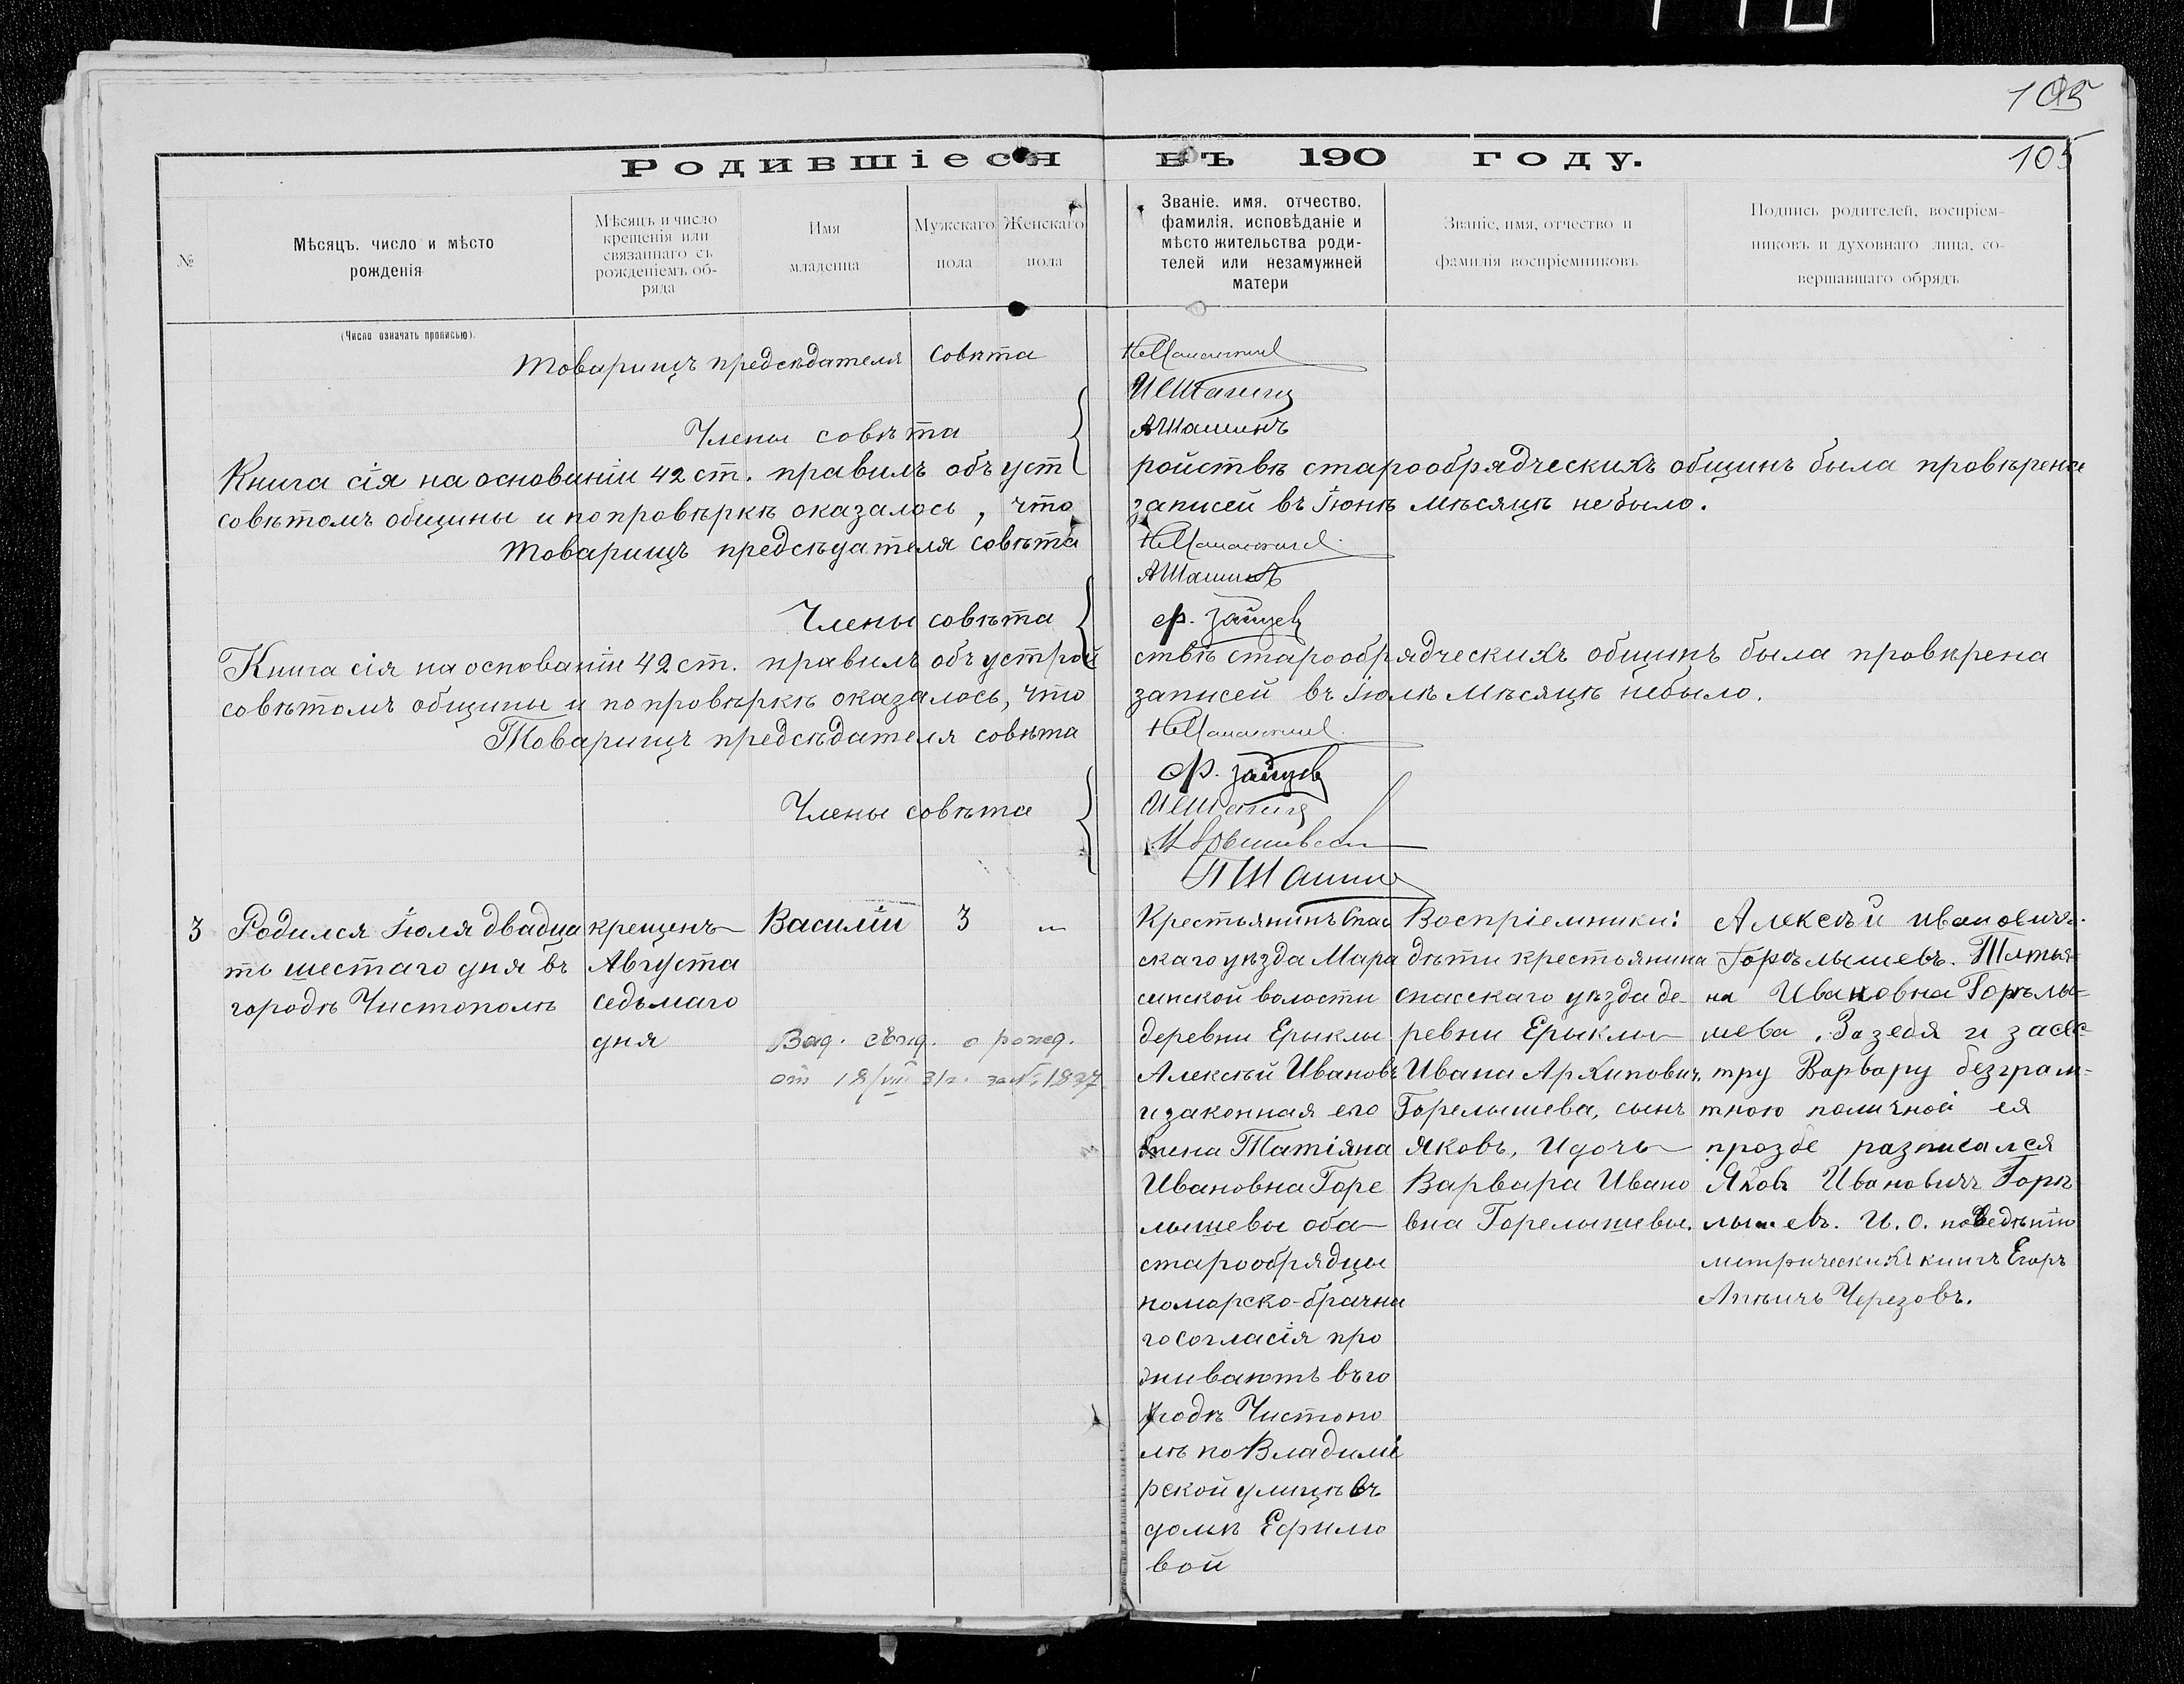 105
105
Родившіеся въ 190 году.
№
Мѣсяцъ, число и мѣсто
рожденія
Мѣсяцъ и число
крещенія или
связаннаго съ
рожденіемъ об-
ряда
Имя
младенца
Мужскаго
пола
Женскаго
пола
Званіе, имя, отчество,
фамилія, исповѣданіе и
мѣсто жительства роди-
телей или незамужней
матери
Званіе, имя, отчество и
фамилія воспріемниковъ
Подпись родителей, воспріем-
никовъ и духовнаго лица, со-
вершавшаго обрядъ
(Число означать прописью).
Товарищъ предсѣдателя совѣта
Члены совѣта
АШашинъ
Книга сія на основаніи 42 ст. правилъ объ устройствѣ старообрядческихъ общинъ была провѣрена
совѣтомъ общины и по провѣркѣ оказалось, что записей въ Іюнѣ мѣсяцѣ небыло.
Товарищъ предсѣдателя совѣта
АШашинъ
Члены совѣта Ф. Зайцев
Книга сія на основаніи 42 ст. правилъ объ устройствѣ старообрядческихъ общинъ была провѣрена
совѣтомъ общины и по провѣркѣ оказалось, что записей въ Іюлѣ мѣсяцѣ небыло.
Товарищъ предсѣдателя совѣта
Ф. Зайцев
Члены совѣта
ПШашин
3
Родился Іюля двадца
ть шестаго дня въ
городѣ Чистополѣ
крещенъ
Августа
седьмаго
дня
Василій
3
"
Выд. свид. о рожд.
от 18/VIII 31г. за № 1827
Крестьянинъ Спас
скаго уѣзда Мара
синской волости
деревни Ерыклы
Алексѣй Ивановъ
и законная его
жена Татіяна
Ивановна Горе
лышевы оба
старообрядцы
поморско-брачна
го согласія про
живаютъ въ го
родѣ Чистопо
лѣ по Владимі
рской улицѣ въ
домѣ Ефимо
вой
Воспріемники:
дѣти крестьянина
Спасскаго уѣзда де
ревни Ерыклы
Ивана Архипович.
Горелышева, сынъ
Яковъ, и дочь
Варвара Ивано
вна Горелышевы.
Алексѣй Ивановичъ
Горѣлышевъ. Татья-
на Ивановна Горѣлы-
шева. За зебя и за сес-
тру Варвару безграм-
тною поличной ея
прозбе разписался
Яковъ Ивановичъ Горѣ
лышевъ. И. О. по ведѣнію
метрическихъ книгъ Егоръ
Черезовъ.